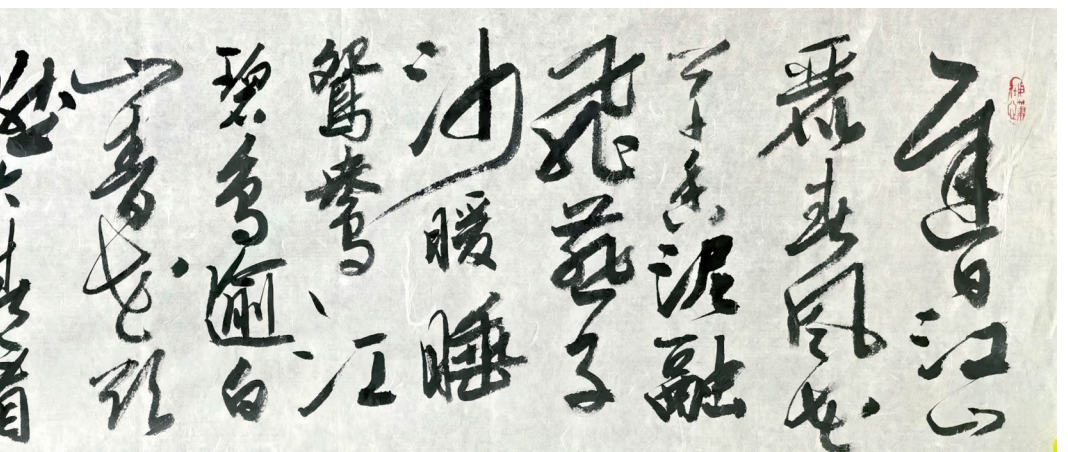 遲日江山
麗春风花
草香泥融
飛燕子
沙暖睡
鴛鴦江
碧鸟逾白
山青花欲
然今春看